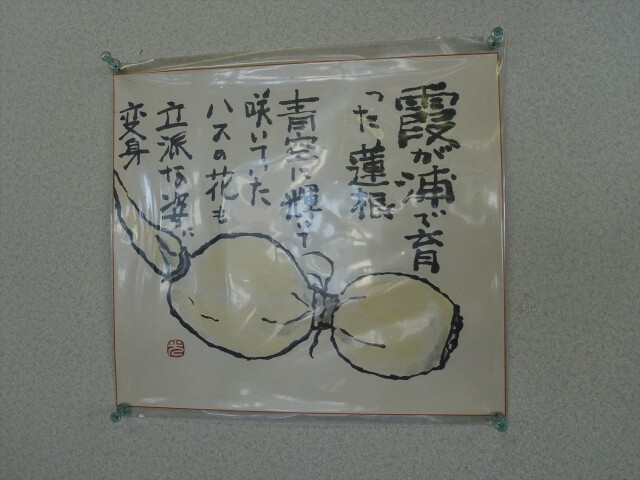 霞が浦で育
った蓮根
青空に輝いて
咲いていた
ハスの花も
立派な姿に
変身